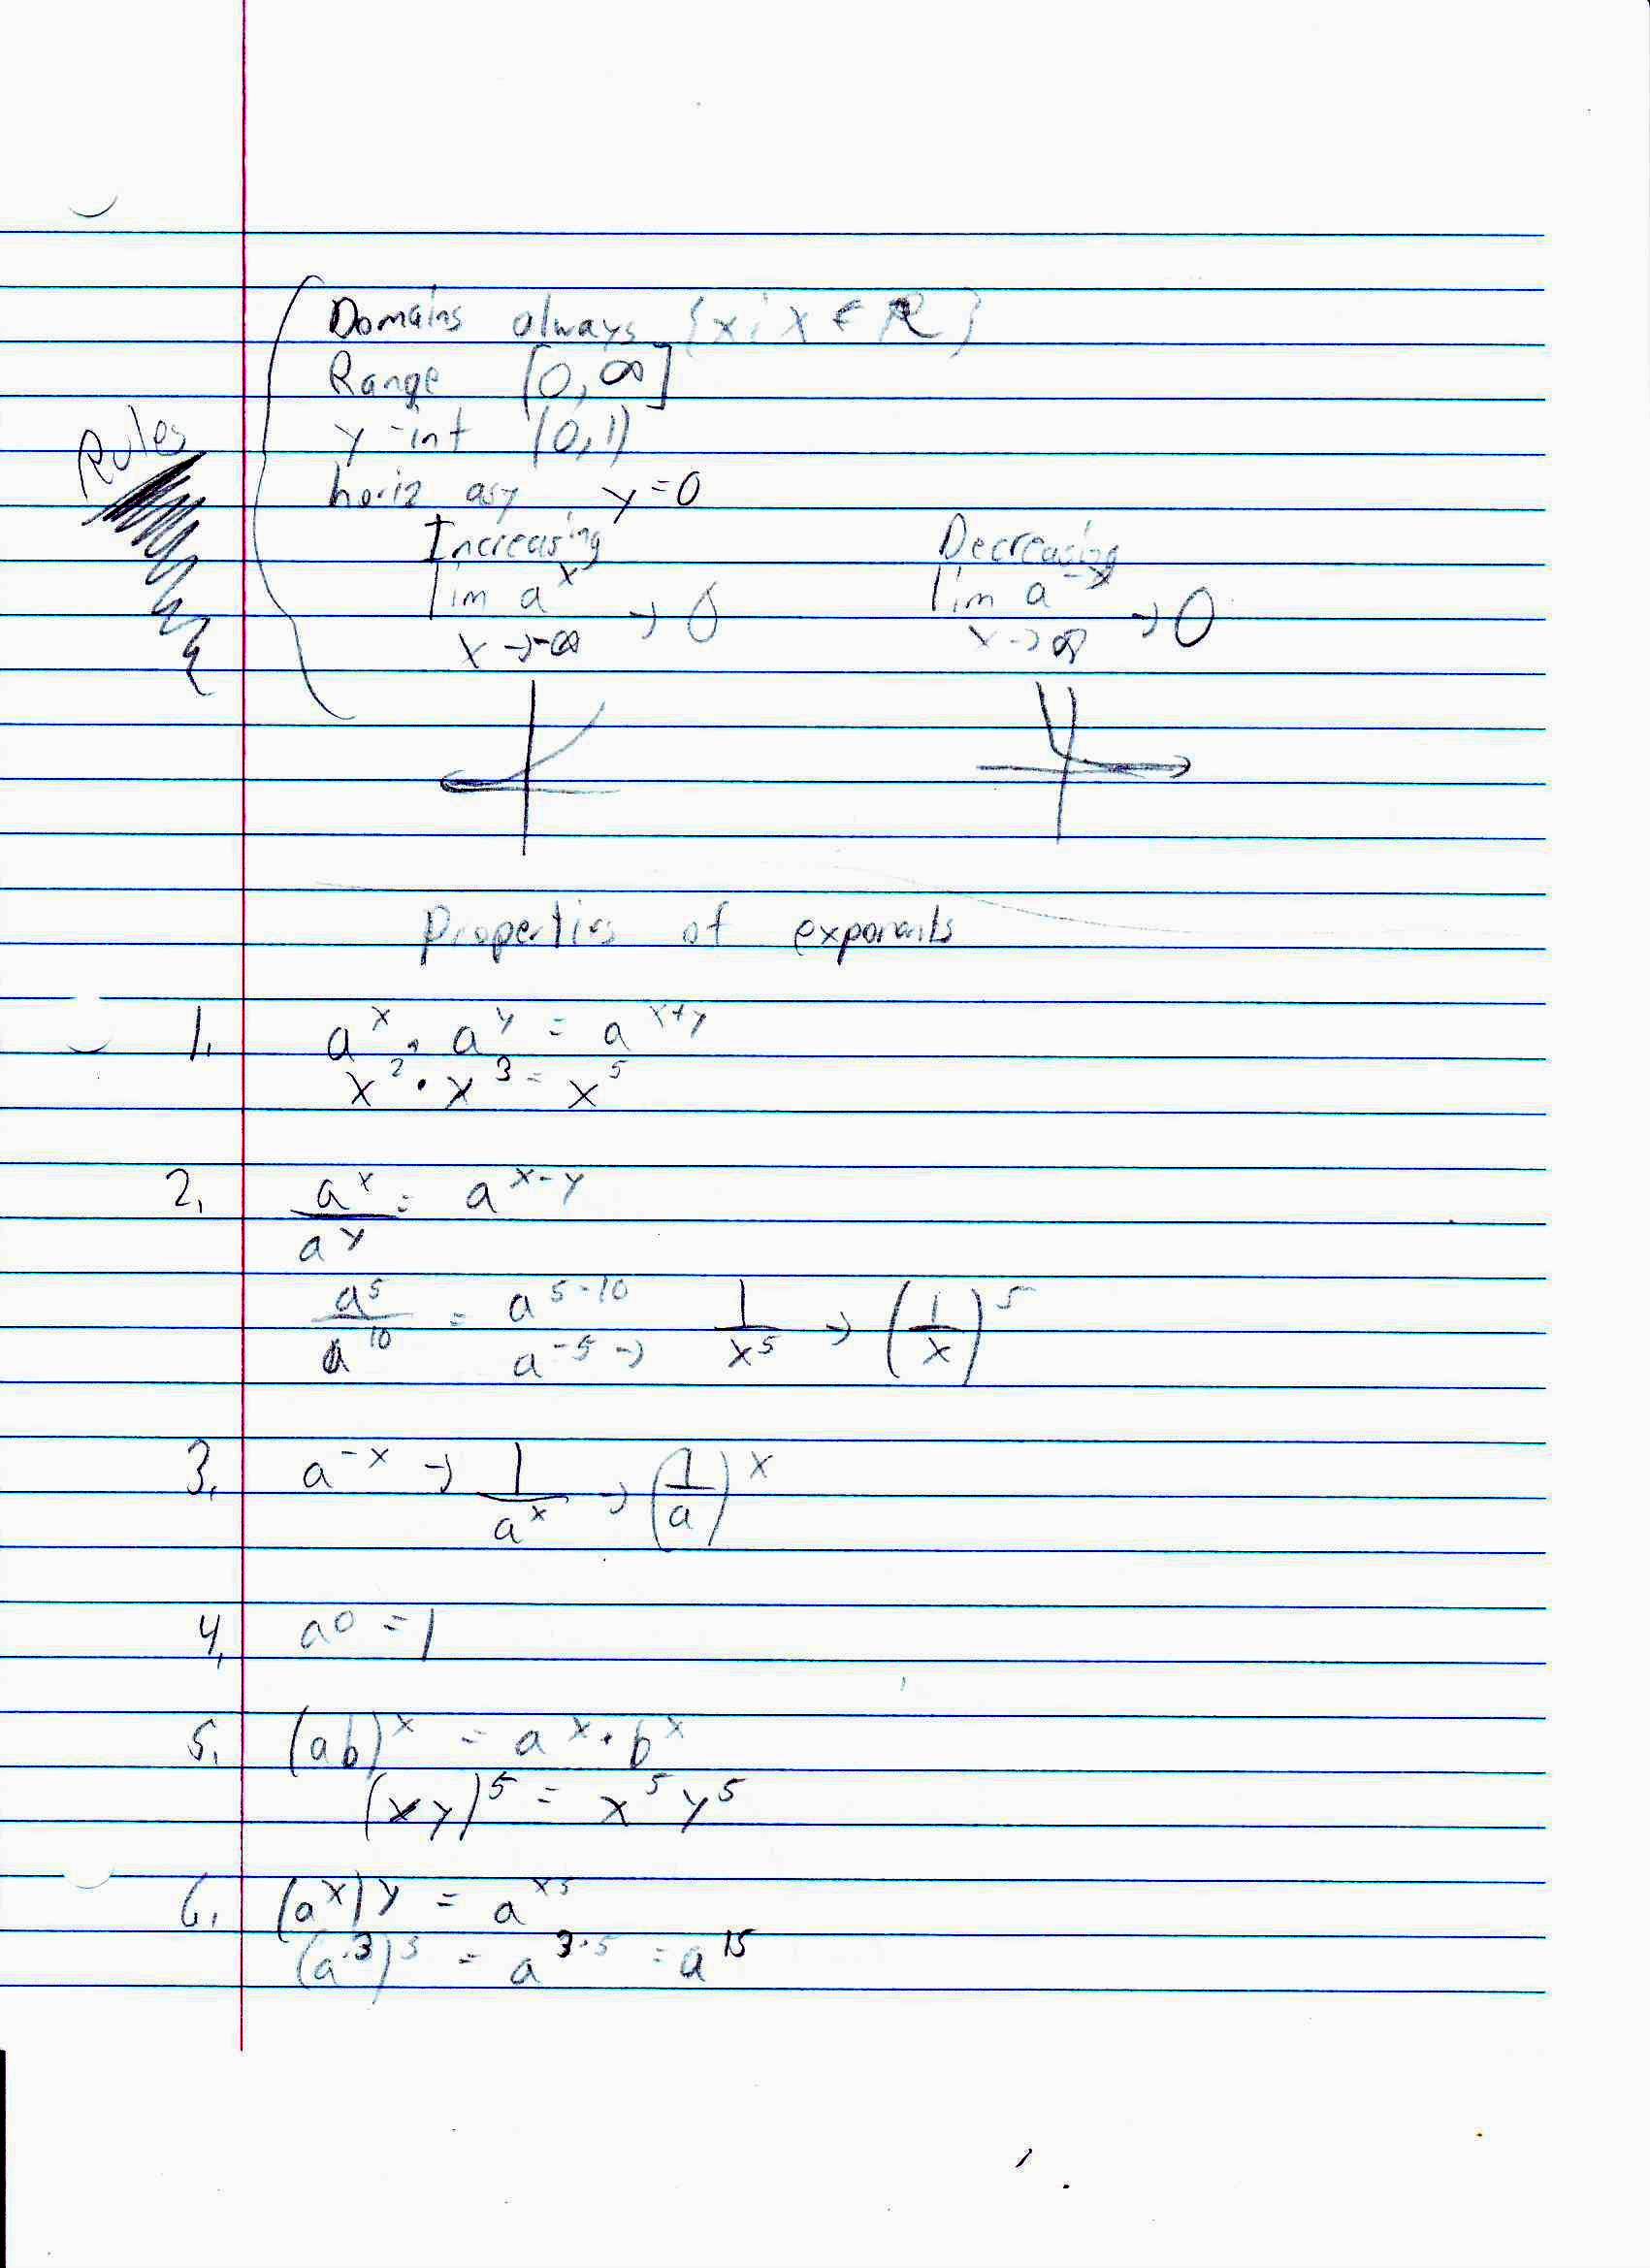 Rules
Domains always {x : x ∈ ℝ}
Range [0, ∞]
y-int (0,1)
horiz asy y=0
Increasing Decreasing
lim a^x → 0 lim a^-x → 0
x→-∞ x→∞
Properties of exponents
1. a^x · a^y = a^x+y
x^2 · x^3 = x^5
2. a^x / a^y = a^x-y
a^5 / a^10 = a^5-10
a^-5 → 1/x^5 → (1/x)^5
3. a^-x → 1/a^x → (1/a)^x
4. a^0 = 1
5. (ab)^x = a^x · b^x
(xy)^5 = x^5 y^5
6. (a^x)^y = a^xy
(a^3)^5 = a^3·5 = a^15